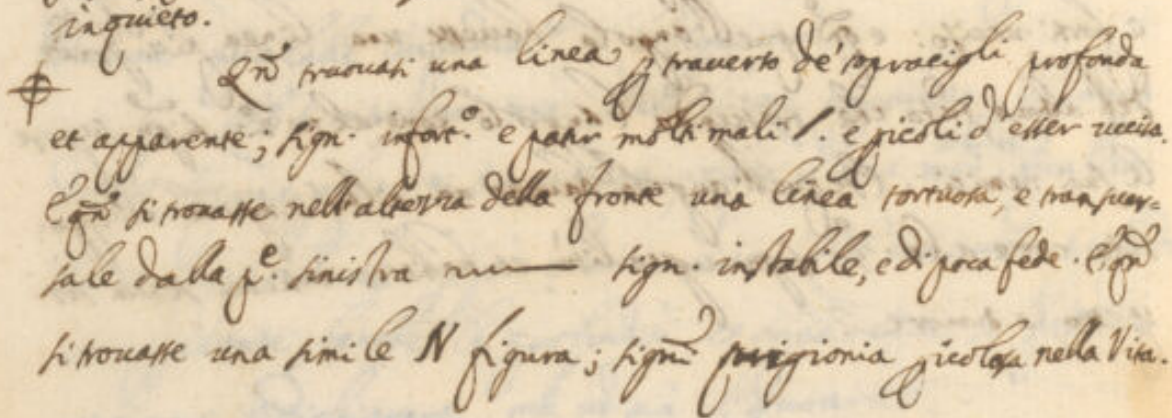 inquieto.
Qn̄ truovasi una linea ꝑ traverso de' sopracigli profonda
et apparente; sign. infort.° e patir molti mali /. e ꝑicoli d' esser ucciso.
E qn̄ si trovasse nell'altezza della fronte una linea tortuosa, e transver=
sale dalla p.e sinistra sign. instabile, e di poca fede. E qn̄
si trovasse una simile N figura; sign. prigionia ꝑicolosa nella Vita.